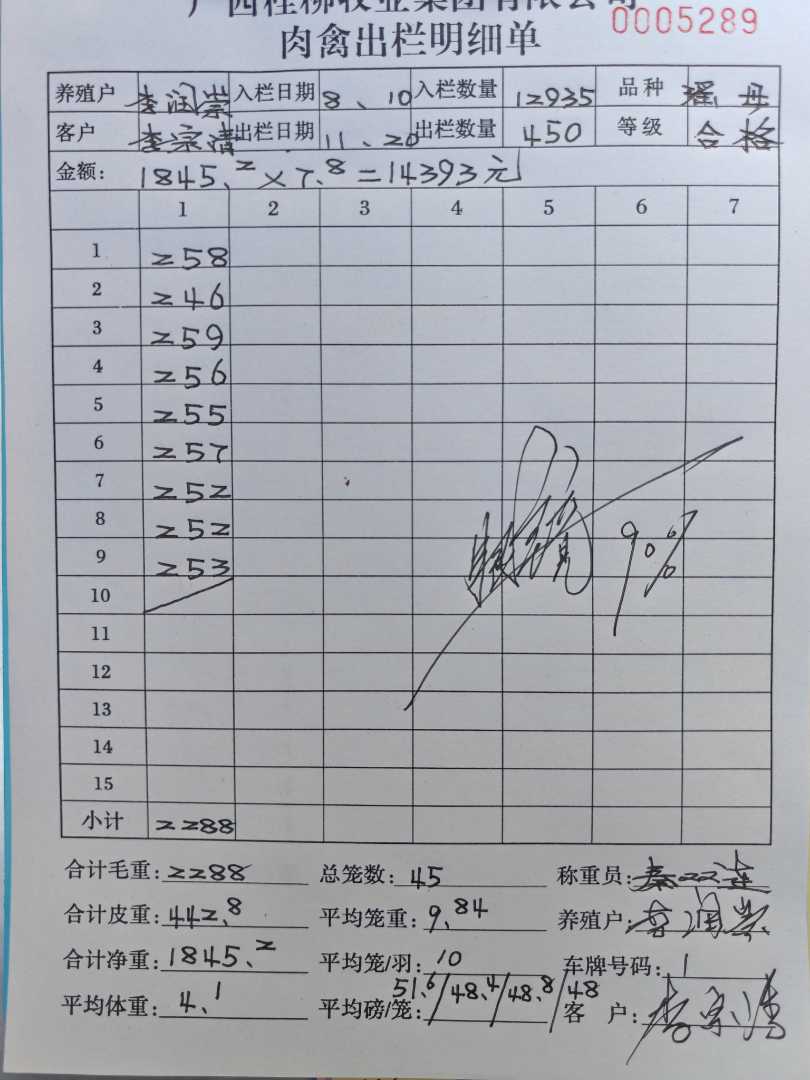 广西桂柳牧业集团有限公司
0005289
肉禽出栏明细单
养殖户 李润崇 入栏日期 8、10 入栏数量 12935 品种 瑶丹
客户 李宗清 出栏日期 11、20 出栏数量 450 等级 合格
金额: 1845.2×7.8=14393元
1 2 3 4 5 6 7
1 258
2 246
3 259
4 256
5 255
6 257
7 252
8 252
9 253
90%
10
11
12
13
14
15
小计 2288
合计毛重: 2288 总笼数: 45 称重员:
合计皮重: 442.8 平均笼重: 9.84 养殖户: 李润崇
合计净重: 1845.2 平均笼/羽: 10 车牌号码: 1
平均体重: 4.1 平均磅/笼: 51.6/48.4/48.8/48 客 户: 李宗清